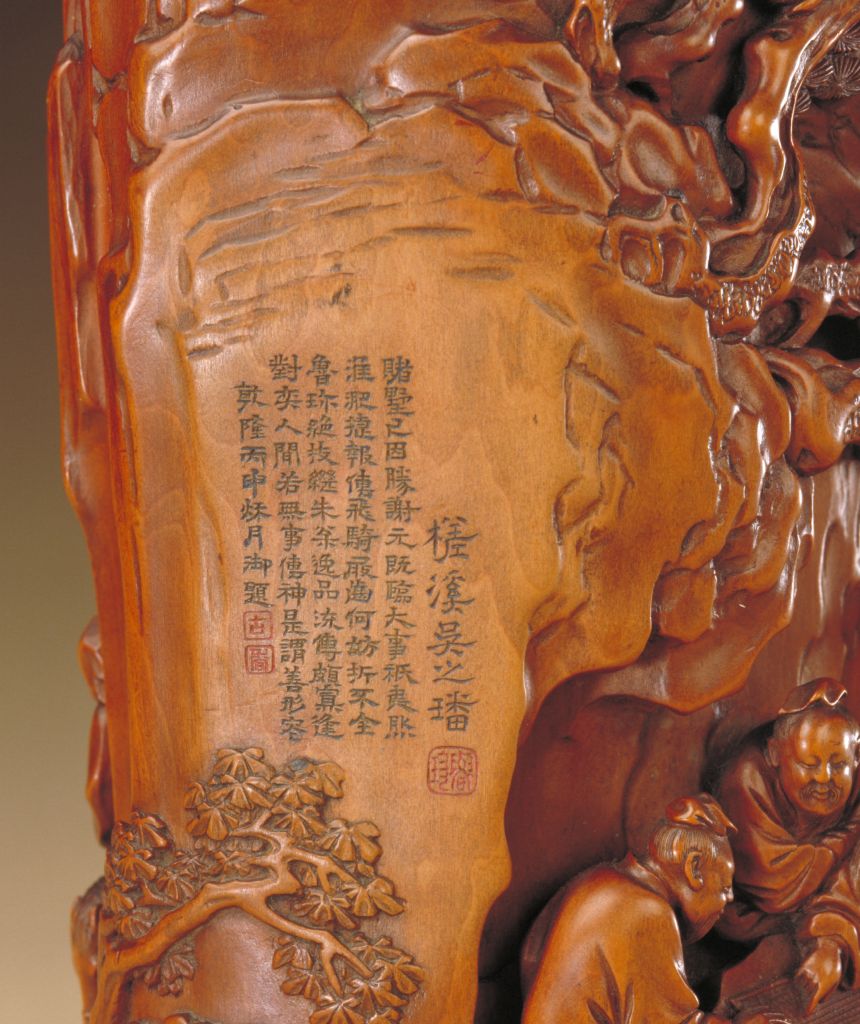 槎溪吳之璠
魯珍
賭墅已因勝謝元既臨大事祇夷然
淮淝捷報傳飛騎屐齒何妨折不全
魯珍絕技繼朱枀逸品流傳頗寡逢
對奕人間若無事傳神是謂善形容
乾隆丙申秋月御題
古